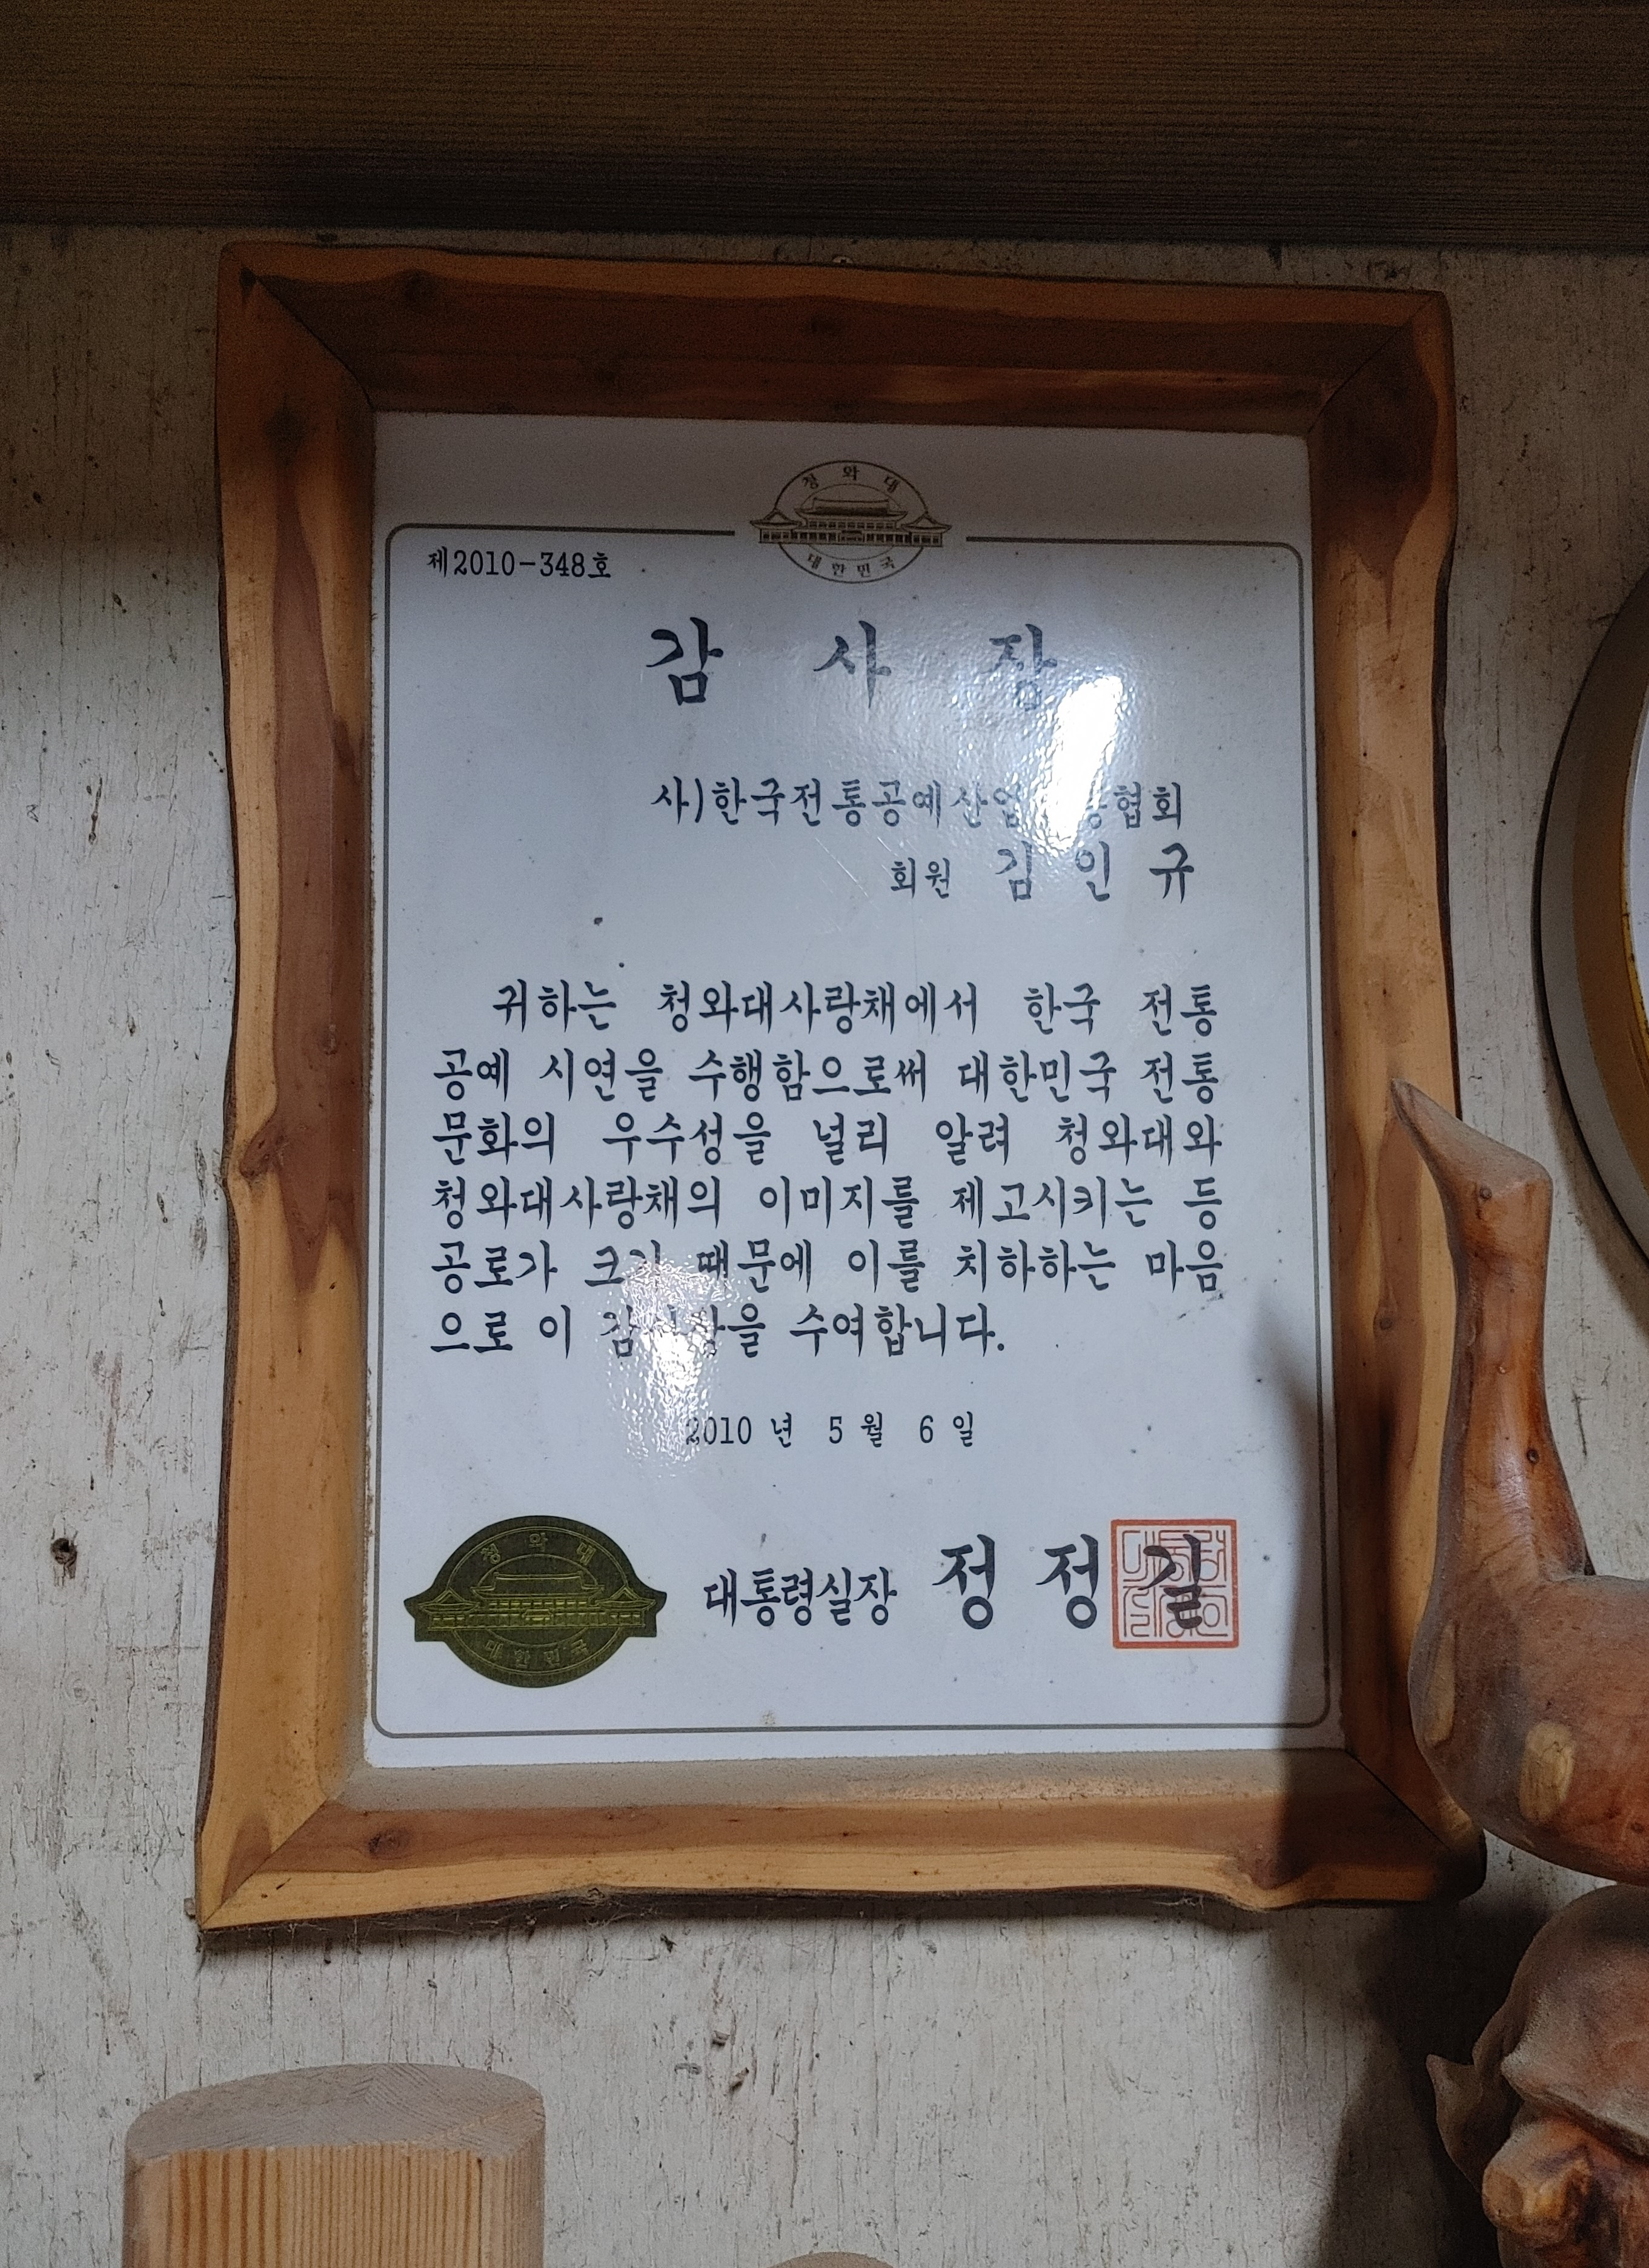 청와대
대한민국
제2010-348호
감 사 장
사)한국전통공예산업 협회
회원 김 인 규
귀하는 청와대사랑채에서 한국 전통
공예 시연을 수행함으로써 대한민국 전통
문화의 우수성을 널리 알려 청와대와
청와대사랑채의 이미지를 제고시키는 등
공로가 크기 때문에 이를 치하하는 마음
으로 이 감사장을 수여합니다.
2010 년 5 월 6 일
청와대
대한민국
대통령실장 정 정 길